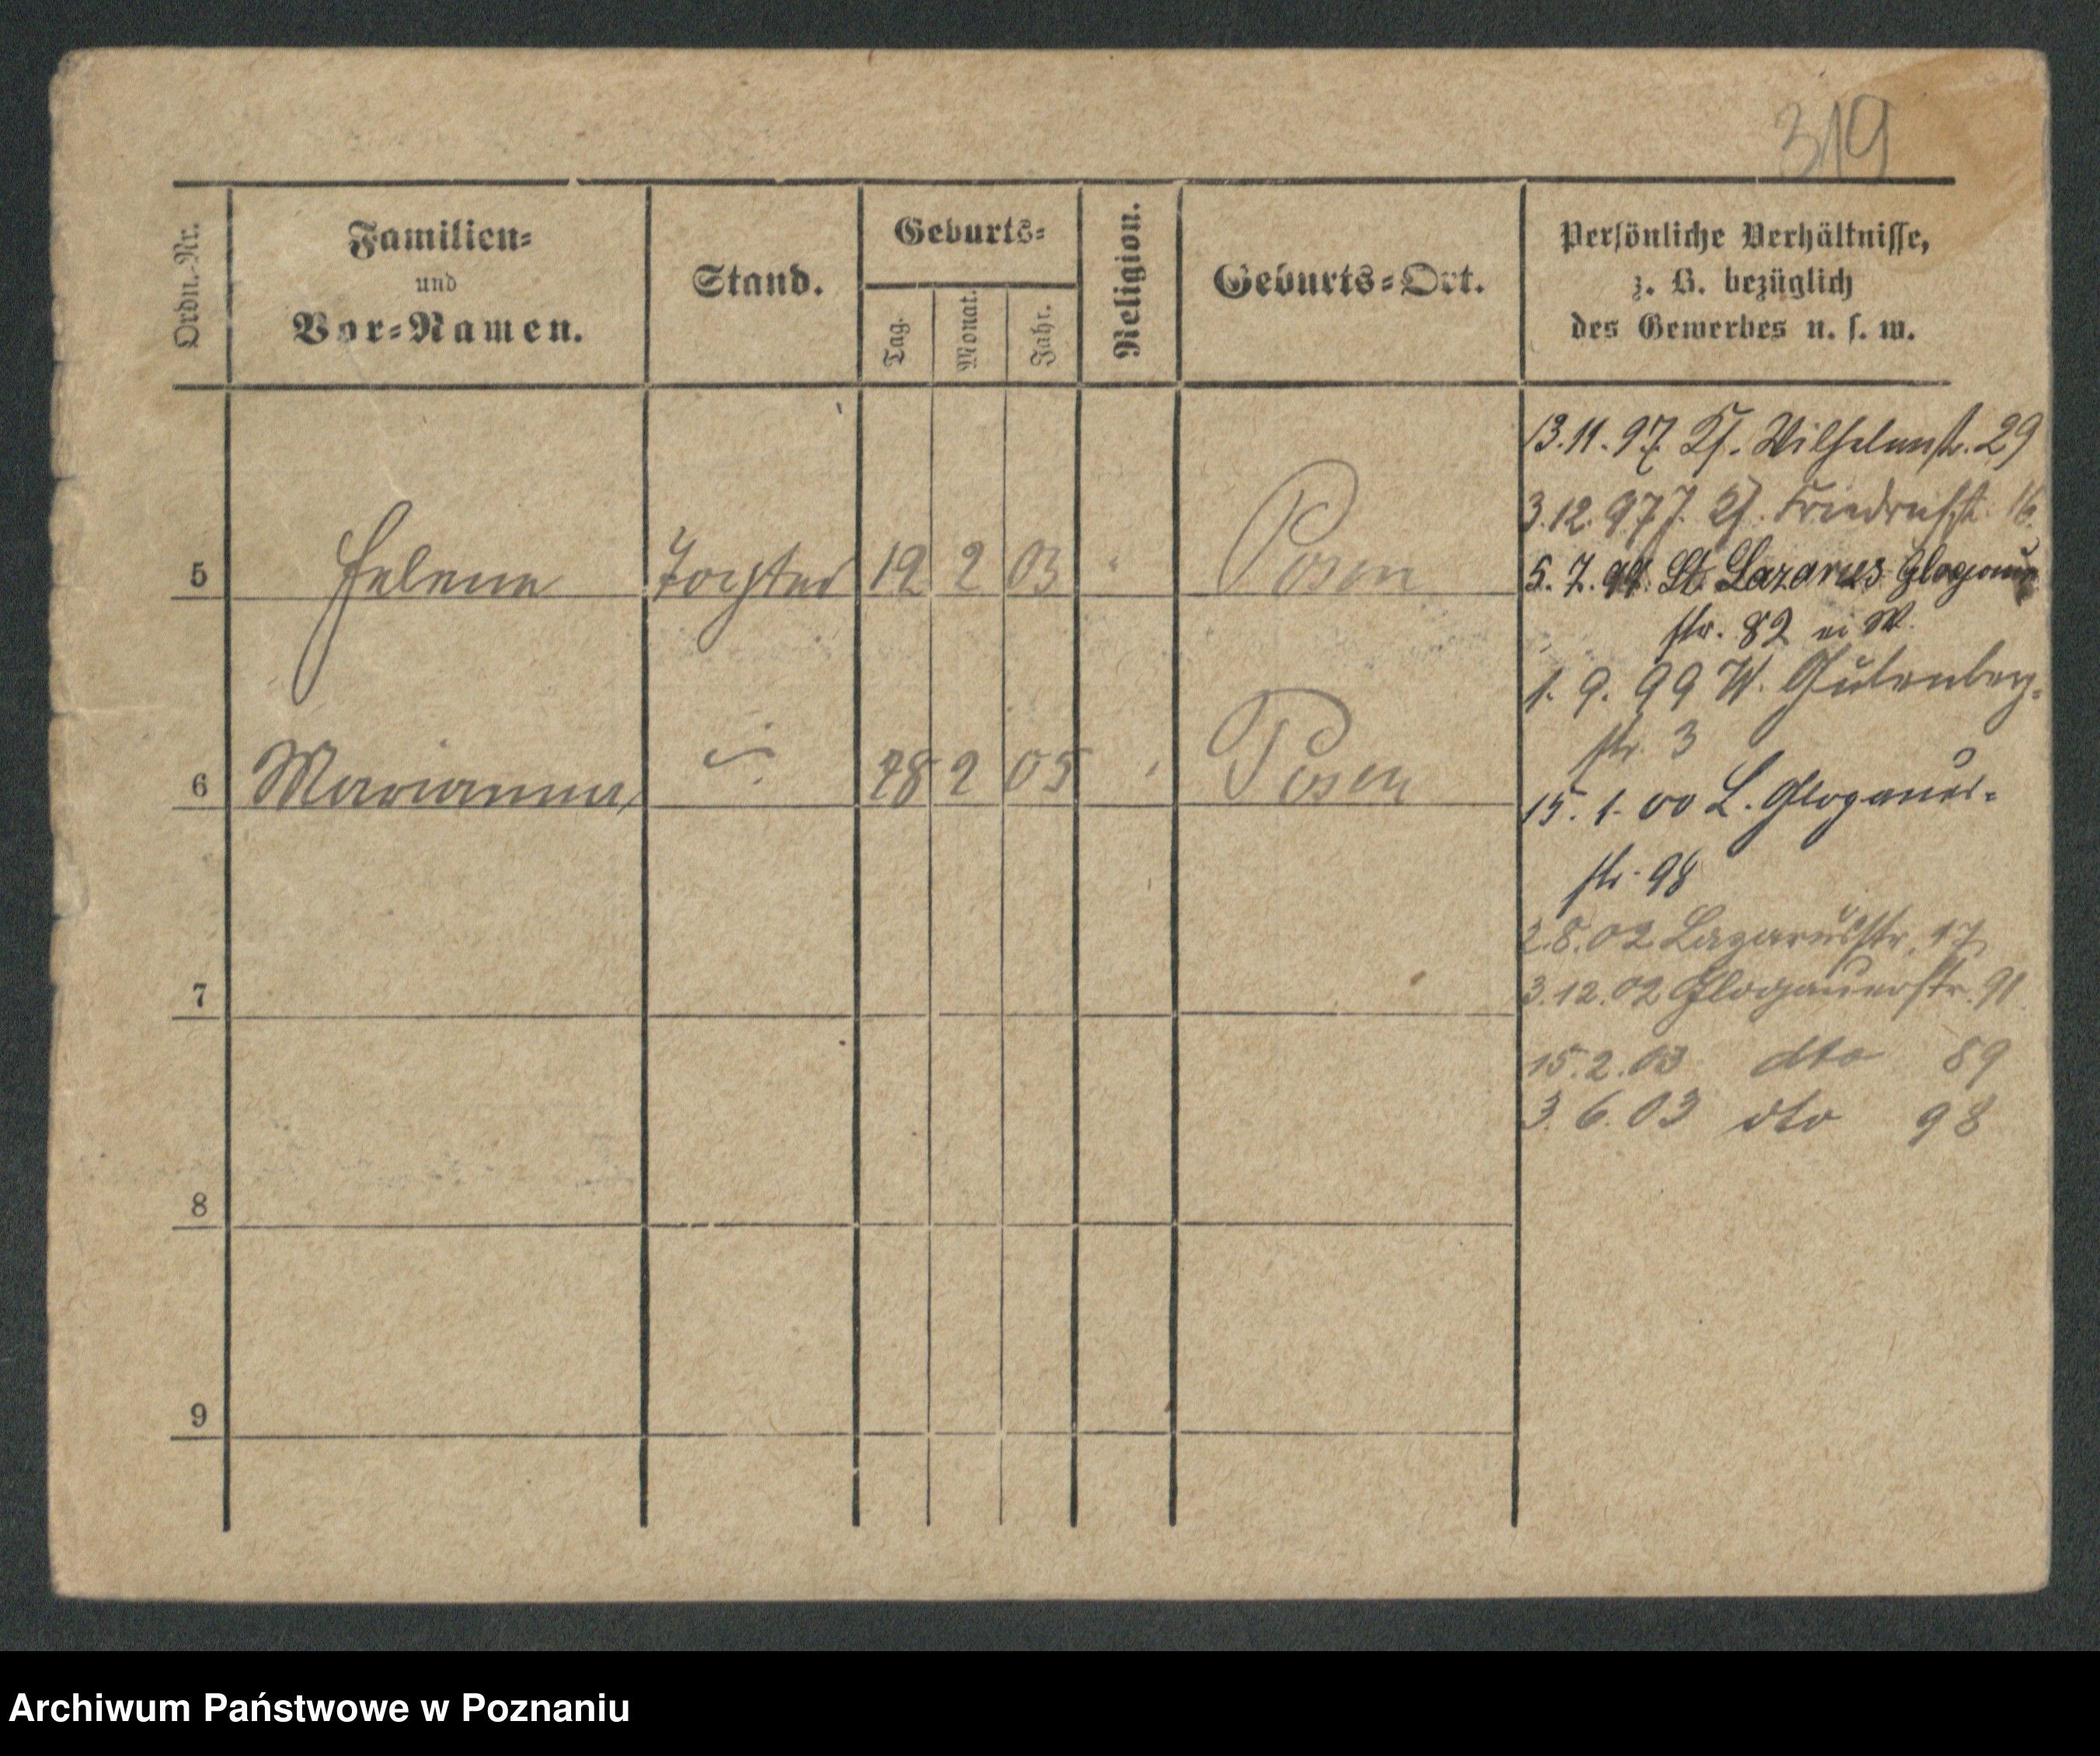 319
Ordn.-Nr.
Familien-
und
Vor-Namen.
Stand.
Geburts-
Tag.
Monat.
Jahr.
Religion.
Geburts-Ort.
Persönliche Verhältnisse,
z. B. bezüglich
des Gewerbes u. s. w.
5 Helene Tochter 12 2 03 Posen
6 Marianna 28 2 05 Posen
7
8
9
13.11.97 Wilhelmstr. 29
3.12.97 Friedrichstr. 16
5.7.99 St. Lazarus Glogauer
str. 82 W.
1.9.99 W. Gutenberg-
str. 3
15.1.00 L. Glogauer-
str. 98
2.8.02 Lazarusstr. 17
3.12.02 Glogauerstr. 91
15.2.03 dto 89
3.6.03 dto 98
Archiwum Państwowe w Poznaniu